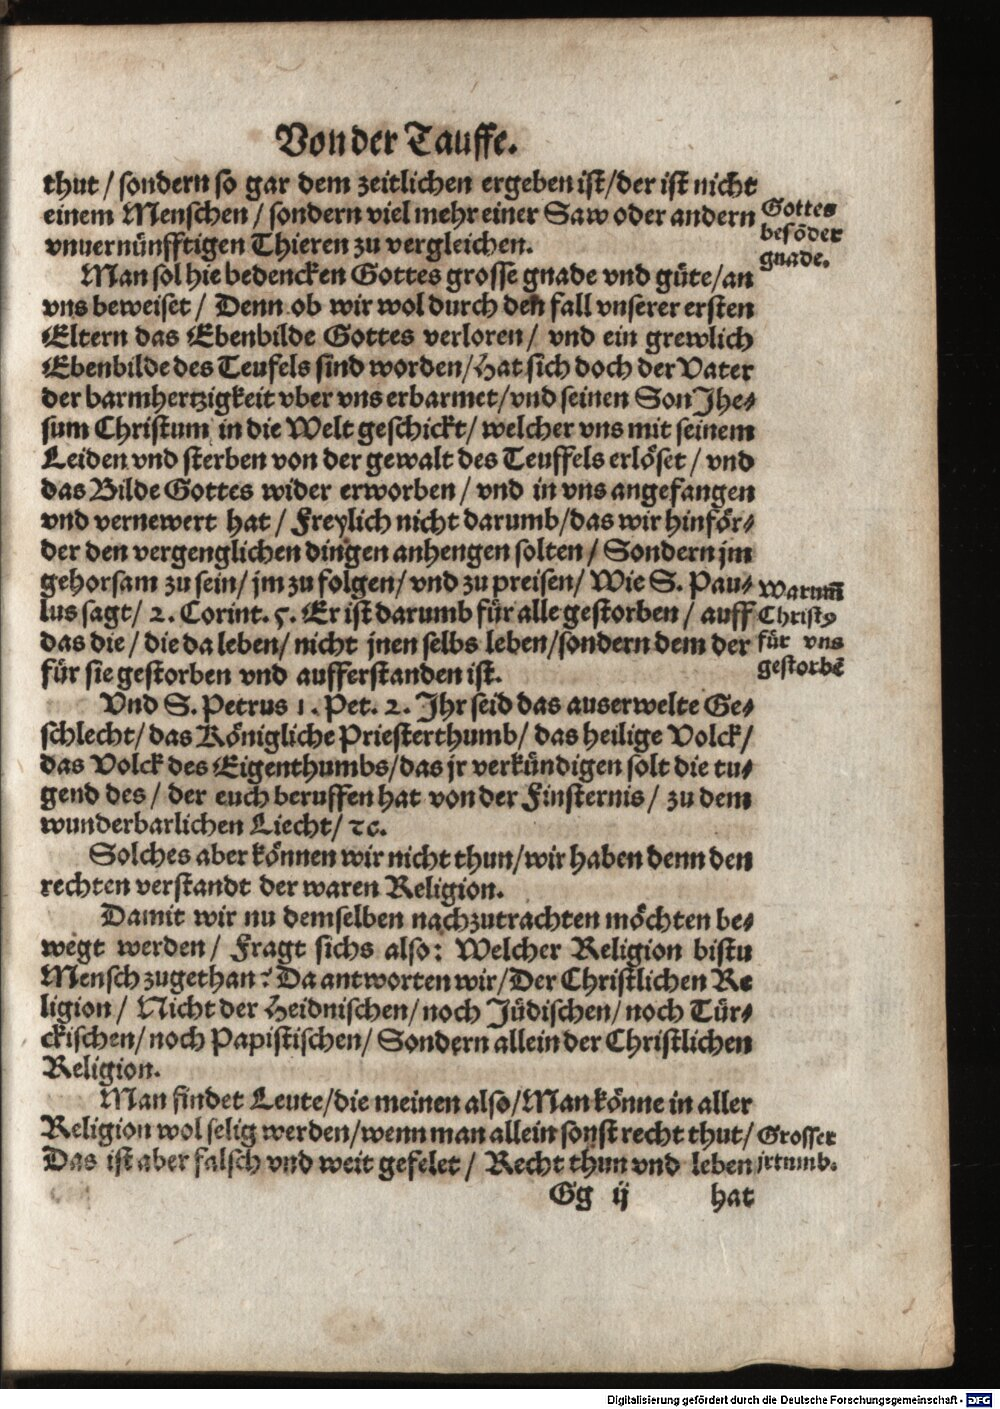 Von der Tauffe.
thut / sondern so gar dem zeitlichen ergeben ist/der ist nicht
einem Menschen / sondern viel mehr einer Saw oder andern
vnuernünfftigen Thieren zu vergleichen.
Gottes
besõder
gnade.
Man sol hie bedencken Gottes grosse gnade vnd güte/an
vns beweiset / Denn ob wir wol durch den fall vnserer ersten
Eltern das Ebenbilde Gottes verloren / vnd ein grewlich
Ebenbilde des Teufels sind worden/Hat sich doch der Vater
der barmhertzigkeit vber vns erbarmet/vnd seinen Son Jhe⸗
sum Christum in die Welt geschickt/ welcher vns mit seinem
Leiden vnd sterben von der gewalt des Teuffels erlöset / vnd
das Bilde Gottes wider erworben / vnd in vns angefangen
vnd vernewert hat / Freylich nicht darumb/das wir hinför⸗
der den vergenglichen dingen anhengen solten / Sondern jm
gehorsam zu sein/ jm zu folgen/ vnd zu preisen/ Wie S. Pau⸗
lus sagt/ 2. Corint. 5. Er ist darumb für alle gestorben / auff
das die / die da leben/ nicht jnen selbs leben/sondern dem der
für sie gestorben vnd aufferstanden ist.
Warum̃
Christꝰ
für vns
gestorbẽ
Vnd S. Petrus 1. Pet. 2. Jhr seid das auserwelte Ge⸗
schlecht/ das Königliche Priesterthumb/ das heilige Volck/
das Volck des Eigenthumbs/das jr verkündigen solt die tu⸗
gend des / der euch beruffen hat von der Finsternis / zu dem
wunderbarlichen Liecht/ ꝛc.
Solches aber können wir nicht thun/wir haben denn den
rechten verstandt der waren Religion.
Damit wir nu demselben nachzutrachten möchten be⸗
wegt werden/ Fragt sichs also: Welcher Religion bistu
Mensch zugethan? Da antworten wir/Der Christlichen Re
ligion / Nicht der Heidnischen/noch Jüdischen/noch Tür⸗
ckischen/noch Papistischen/ Sondern allein der Christlichen
Religion.
Man findet Leute/die meinen also/Man könne in aller
Religion wol selig werden/wenn man allein sonst recht thut/
Das ist aber falsch vnd weit gefelet / Recht thun vnd leben
Grosser
jrtumb.
Gg ij hat
Digitalisierung gefördert durch die Deutsche Forschungsgemeinschaft - DFG